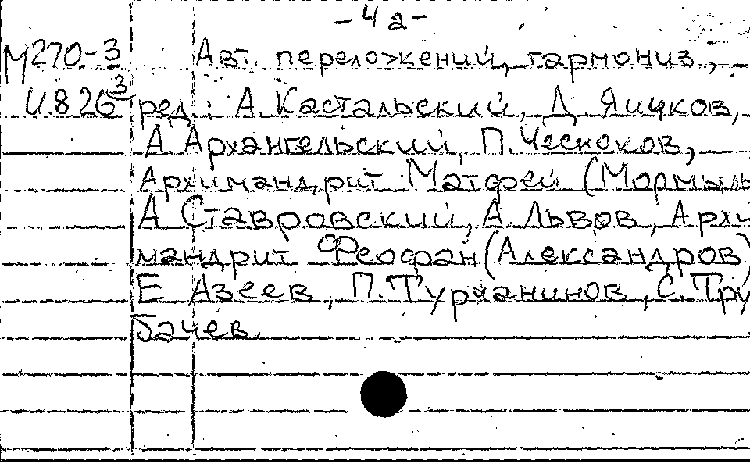 -4а-
М270-3 Авт. переложений, гармониз.,
И.826³ ред.: А.Кастальский, Д. Яичков,
А Архангельский, П.Чесноков,
Архимандрит Матфей (Мормыль
А Ставровский, А.Львов, Архи
мандрит Феофан (Александров)
Е Азеев, П.Турчанинов, С.Тру
бачев